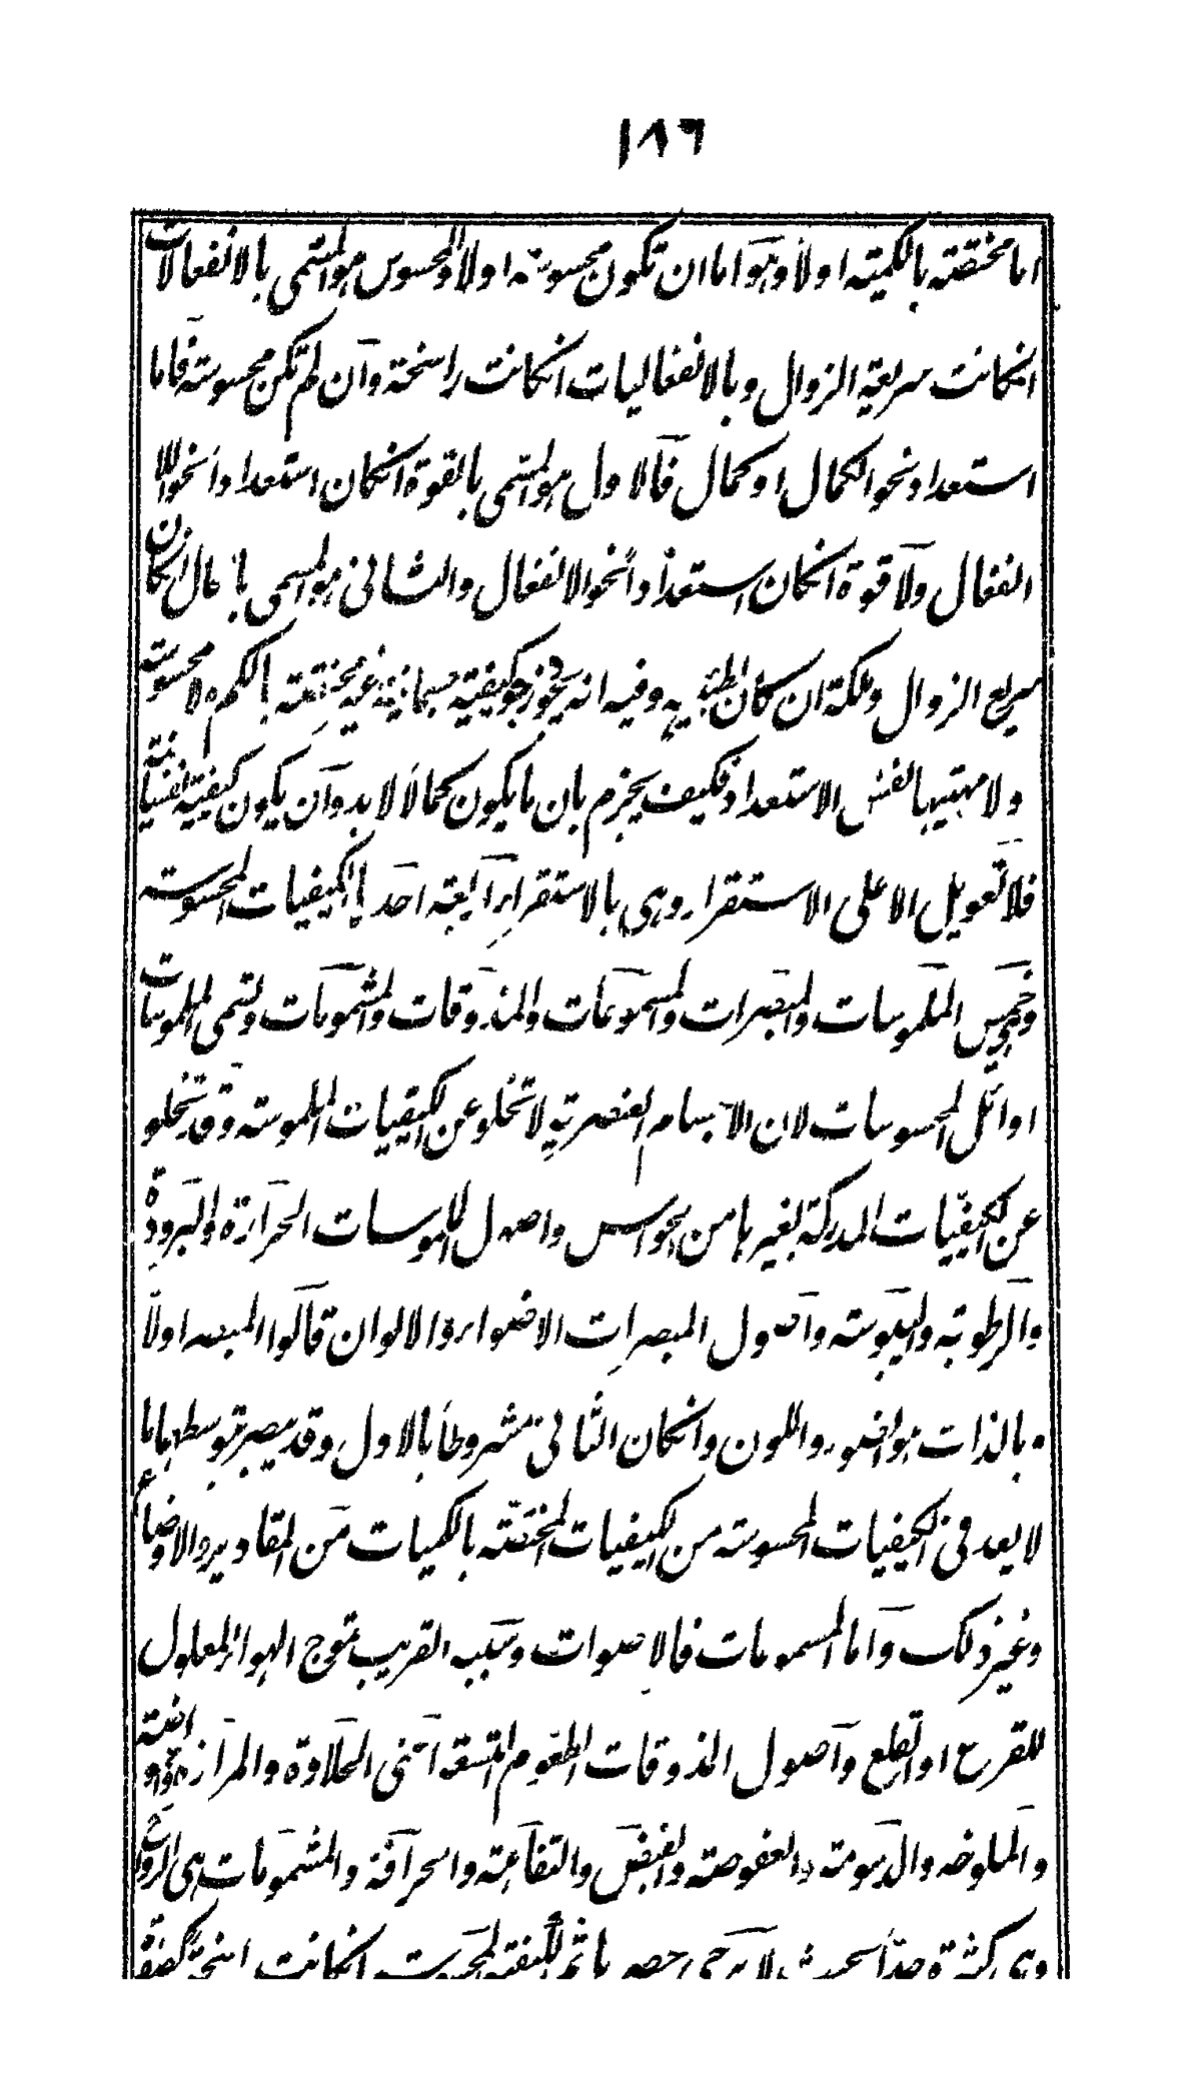 ١٨٦
اما مختصته بالكميته اولا وهو اما ان تكون محسوسته اولا والمحسوس هو المسمى بالانفعالات
انكانت سريعة الزوال وبالانفعاليات انكانت راسخة وان لم تكن محسوسته فاما
استعداد نحو الكمال او كمال فالاول هو المسمى بالقوة انكان استعدادا نحو اللا
انفعال ولا قوة انكان استعدادا نحو الانفعال والثانى هو المسمى بالحال انكان
سريع الزوال وملكة ان كان بطيئه وفيه انه يجوز كيفيته جسمانية غير مختصته بالكم ولا محسوسته
ولا مهيتها نفس الاستعداد فكيف يجزم بان ما يكون كمالا لا بد وان يكون كيفيته نفسانية
فلا تعويل الا على الاستقرار وهى بالاستقرار اربعته احدها الكيفيات المحسوسته
وهى خمس الملموسات والمبصرات والمسموعات والمذوقات والمشمومات وتسمى الملموسات
اوائل المحسوسات لان الاجسام العنصرية لا تخلو عن الكيفيات الملموسته وقد تخلو
عن الكيفيات المدركة بغيرها من الحواس واصول الملموسات الحرارة والبرودة
والرطوبته واليبوسته واصول المبصرات الاضواء والالوان قالوا المبصر اولا
وبالذات هو الضوء واللون وانكان الثانى مشروطا بالاول وقد يبصر بتوسطها ما
لا يعد فى الكيفيات المحسوسته من الكيفيات المختصته بالكميات من المقادير والاوضاع
وغير ذلك واما المسموعات فالاصوات وسببه القريب تموج الهواء المعلول
للقرع او القلع واصول المذوقات الطعوم التسعة اعنى الحلاوة والمرارة والحموضته
والملوحه والدسومته والعفوصته والقبض والتفاهته والحرافة والمشمومات هى الروائح
وهى كثيرة جدا بحيث لا يرجى حصرها ثم الكيفية المحسوسته انكانت راسخة كصفرة